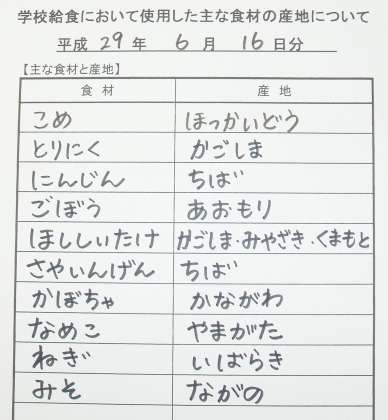 学校給食において使用した主な食材の産地について
平成 29 年 6 月 16 日分
【主な食材と産地】
食 材 産 地
こめ ほっかいどう
とりにく かごしま
にんじん ちば
ごぼう あおもり
ほししいたけ かごしま・みやざき・くまもと
さやいんげん ちば
かぼちゃ かながわ
なめこ やまがた
ねぎ いばらき
みそ ながの